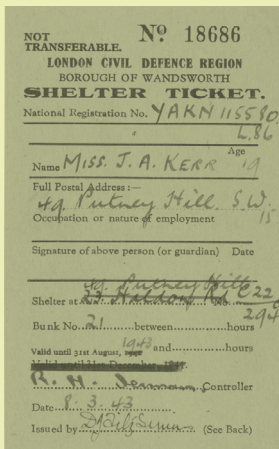 NOT
TRANSFERABLE.
Nº 18686
LONDON CIVIL DEFENCE REGION
BOROUGH OF WANDSWORTH
SHELTER TICKET.
National Registration No. YAKN 115580
L.86
Age
Name MISS. J. A. KERR 19
Full Postal Address:—
49. Putney Hill. S.W.
15
Occupation or nature of employment
Signature of above person (or guardian) Date
49. Putney Hill
Shelter at Rd No. C22
294
Bunk No. 21 between hours
1943 and hours
Valid until 31st August,
Valid until 31st December,
R. H. Controller
Date 8.3.43
Issued by (See Back)